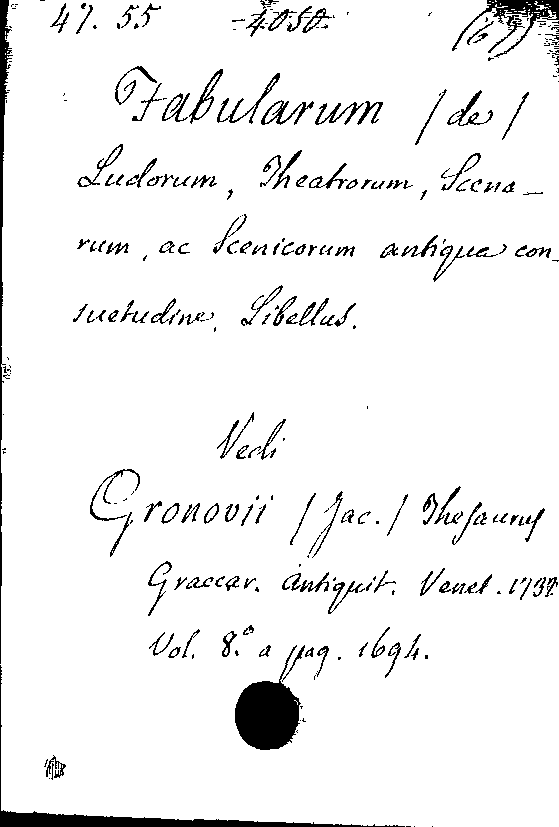 47. 55 4050. (67)
Fabularum / de /
Ludorum, Theatrorum, Scena-
rum, ac Scenicorum antiqua con-
suetudine, Libellus.
Vedi
Gronovii / Jac. / Thesaurus
Graecar. Antiquit. Venet.
Vol. 8.º a pag. 1694.